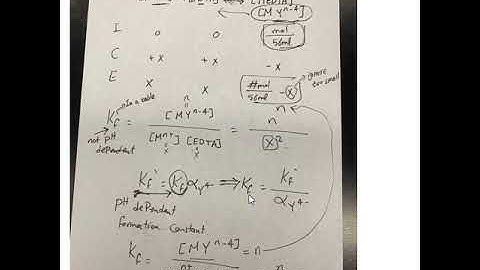 [MEDTA]
[MYⁿ⁻⁴]
I 0 0 mol/56ml
C +x +x -x
E x x ##mol/56ml - x ignore too small
in a table n n
Kf = [MYⁿ⁻⁴]/[Mⁿ⁺][EDTA] = n/[x]²
not pH dependent x x
Kf' = Kf αY⁴⁻ ⇒ Kf = Kf'/αY⁴⁻
pH dependent
formation constant
Kf = [MYⁿ⁻⁴] = n